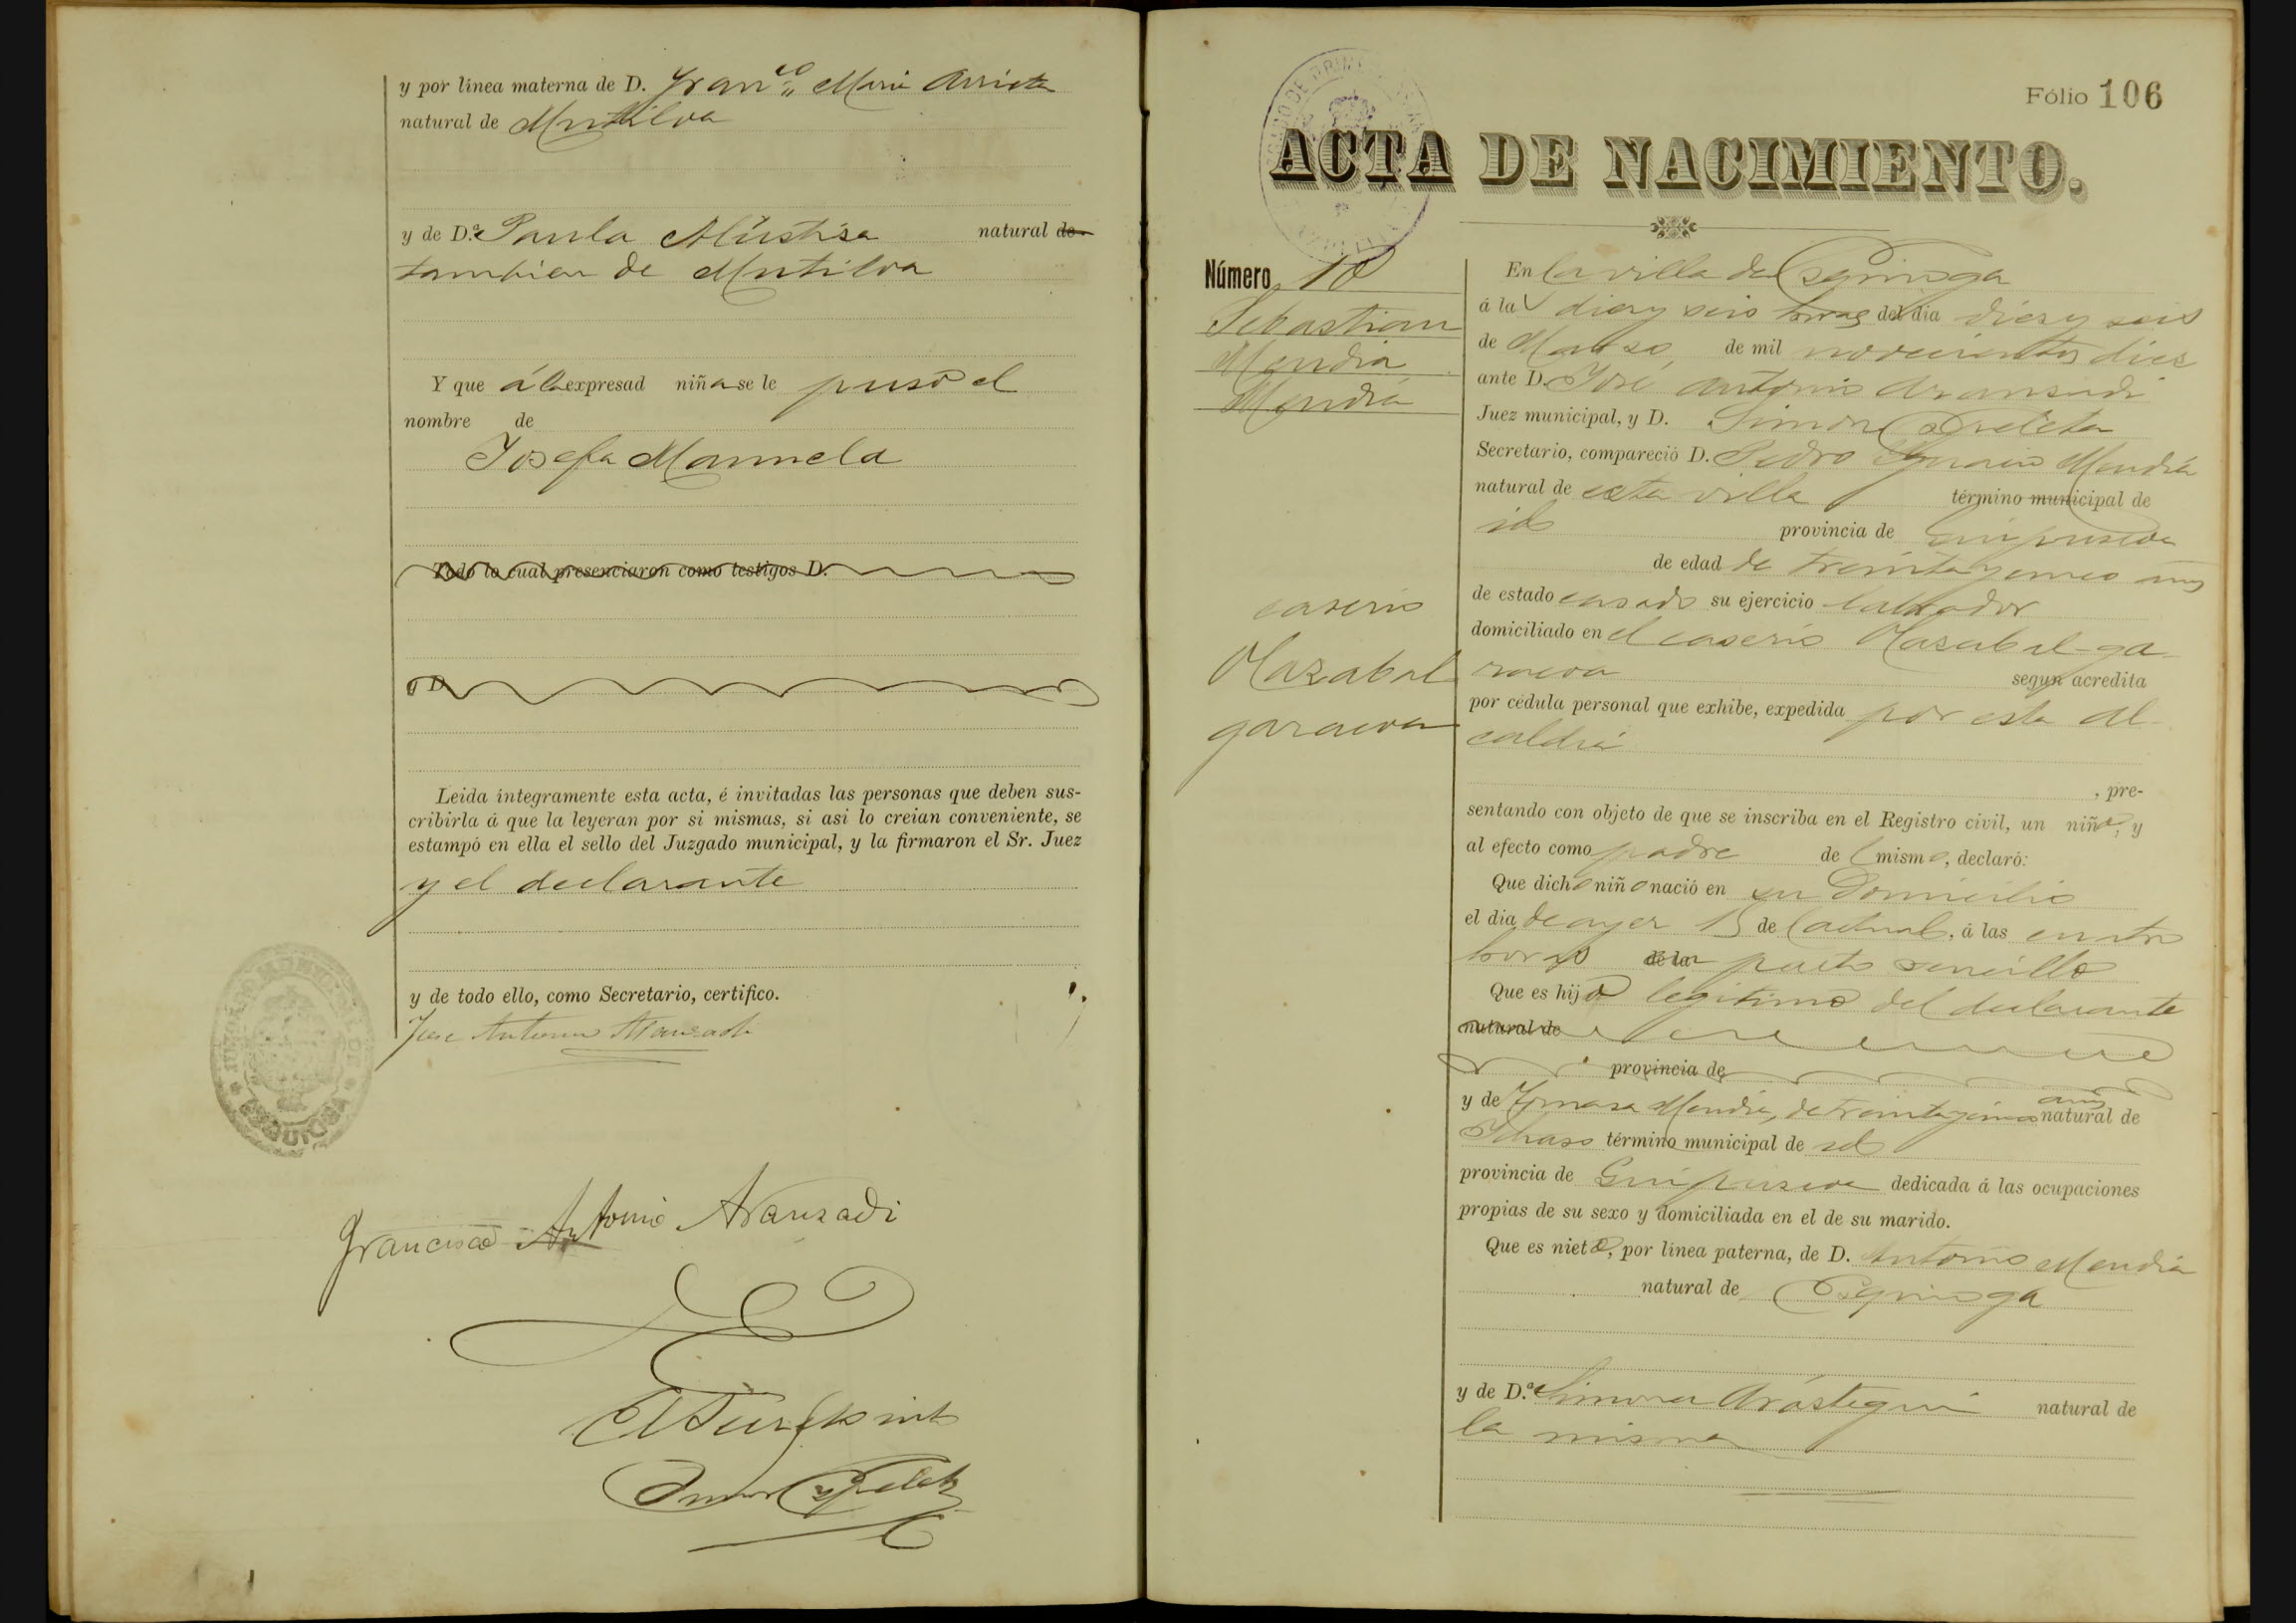 y por línea materna de D. Fran.co Maria Arrieta
natural de Mutilva
y de D.ª Paula Alustiza natural de
tambien de Mutilva
Y que á la expresad niña se le puso el
nombre de
Josefa Manuela
Todo lo cual presenciaron como testigos D.
y D.
Leida íntegramente esta acta, é invitadas las personas que deben sus-
cribirla á que la leyeran por si mismas, si asi lo creian conveniente, se
estampó en ella el sello del Juzgado municipal, y la firmaron el Sr. Juez
y el declarante
y de todo ello, como Secretario, certifico.
Jose Antonio Aranzadi
JUZGADO MUNICIPAL DE
EZQUIOGA
Francisco Antonio Aranzadi
Fólio 106
ACTA DE NACIMIENTO.
Número 10
Sebastian
Mendia
Mendia
caserio
Olazabal
garaicoa
En la villa de Ezquioga
á las diez y seis horas del dia diez y seis
de Marzo de mil novecientos diez
ante D. José Antonio Aranzadi
Juez municipal, y D. Simon
Secretario, compareció D. Pedro Ignacio Mendia
natural de esta villa término municipal de
id provincia de Guipuzcoa
de edad de treinta y cinco años
de estado casado su ejercicio labrador
domiciliado en el caserio Olazabal-ga-
raicoa segun acredita
por cédula personal que exhibe, expedida por esta Al-
caldia
, pre-
sentando con objeto de que se inscriba en el Registro civil, un niño, y
al efecto como padre del mismo, declaró:
Que dicho niño nació en su domicilio
el dia de ayer 15 del actual, á las cuatro
horas de la parto sencillo
Que es hijo legitimo del declarante
natural de
provincia de
y de Tomasa Mendia, de treinta y cinco años natural de
Ichaso término municipal de id
provincia de Guipuzcoa dedicada á las ocupaciones
propias de su sexo y domiciliada en el de su marido.
Que es nieto, por línea paterna, de D. Antonio Mendia
natural de Ezquioga
y de D.ª Simona Aróstegui natural de
la misma